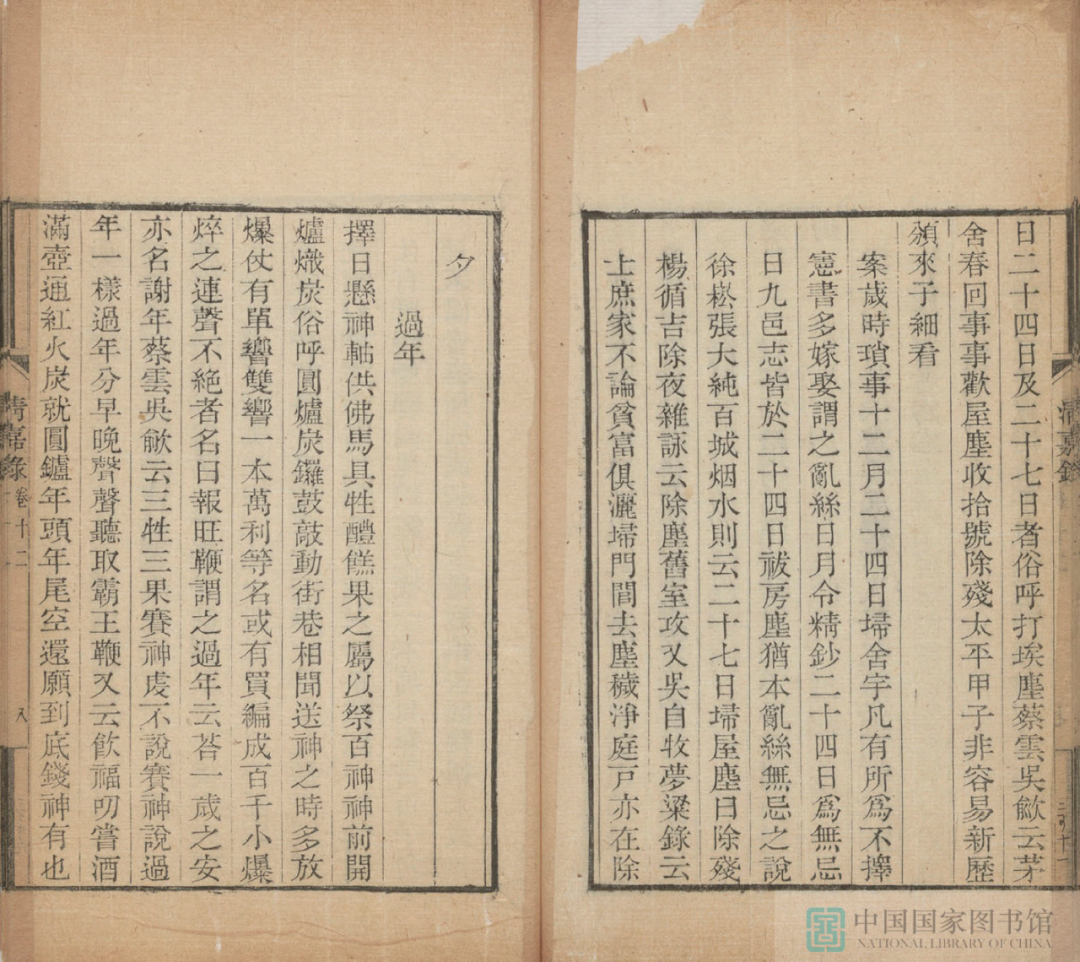 日二十四日及二十七日者俗呼打埃塵蔡雲吳歈云茅
舍春回事事歡屋塵收拾號除殘太平甲子非容易新歷
頒來子細看
案歲時瑣事十二月二十四日埽舍宇凡有所爲不擇
憲書多嫁娶謂之亂絲日月令精鈔二十四日爲無忌
日九邑志皆於二十四日祓房塵猶本亂絲無忌之說
徐崧張大純百城烟水則云二十七日埽屋塵曰除殘
楊循吉除夜雜詠云除塵舊室攻又吳自牧夢粱錄云
士庶家不論貧富俱灑埽門閭去塵穢淨庭戸亦在除
夕
過年
擇日懸神軸供佛馬具牲醴餻果之屬以祭百神神前開
爐熾炭俗呼圓爐炭鑼鼓敲動街巷相聞送神之時多放
爆仗有單響雙響一本萬利等名或有買編成百千小爆
焠之連聲不絕者名曰報旺鞭謂之過年云荅一歲之安
亦名謝年蔡雲吳歈云三牲三果賽神虔不說賽神說過
年一樣過年分早晚聲聲聽取霸王鞭又云飮福叨嘗酒
滿壺通紅火炭就圓鑪年頭年尾空還願到底錢神有也
清嘉錄
卷十二
中国国家图书馆
NATIONAL LIBRARY OF CHINA